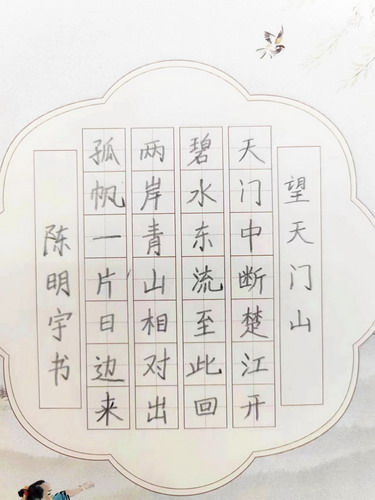 望天门山
天门中断楚江开
碧水东流至此回
两岸青山相对出
孤帆一片日边来
陈明宇书